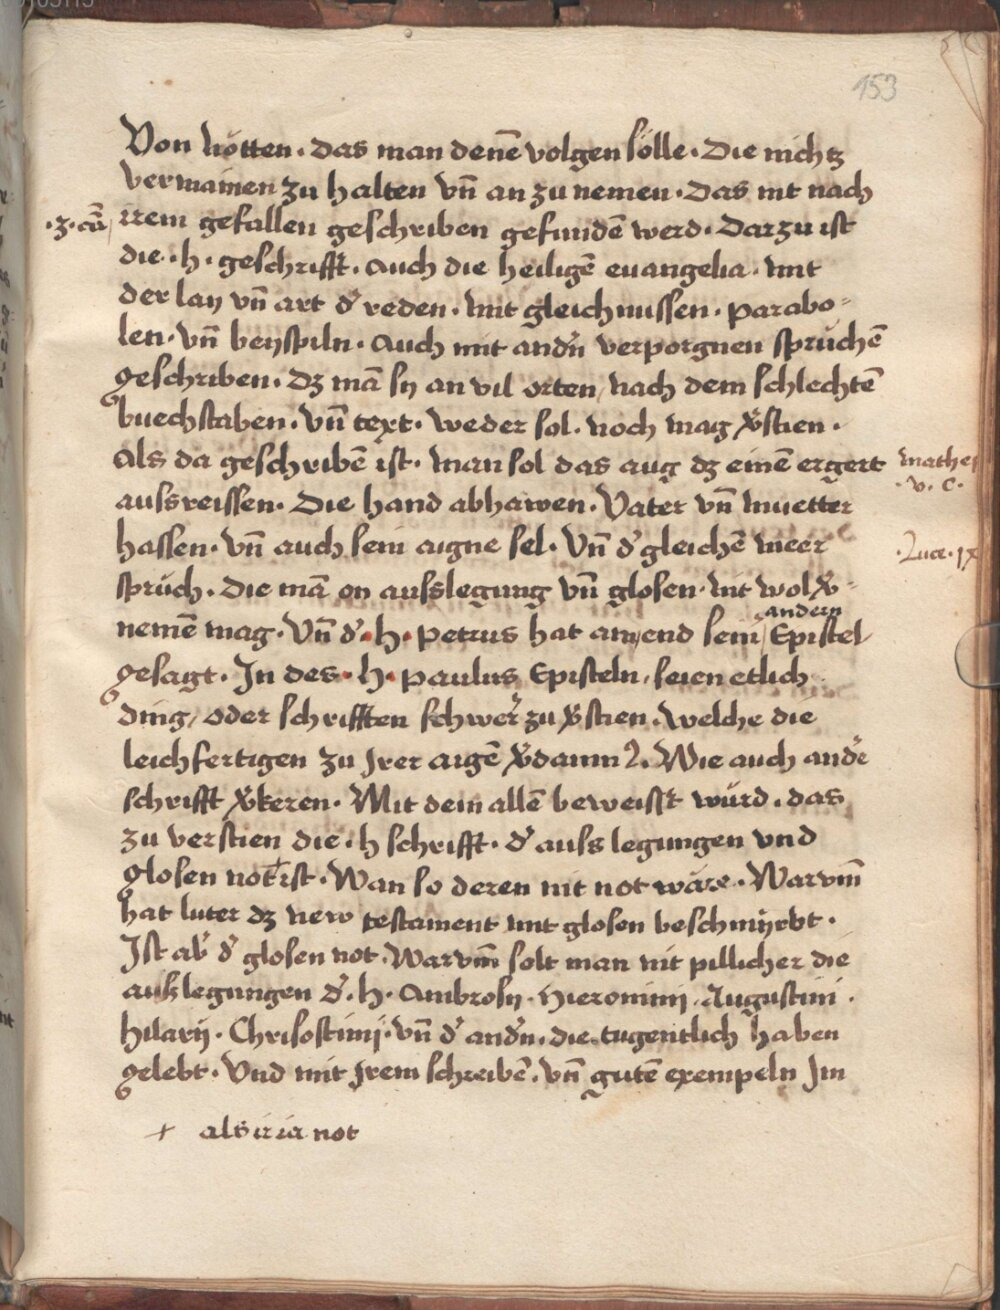 153
Von nötten · das man denē volgen sölle · Die nichtz
vermainen zu halten vn̄ an zu nemen · Das nit nach
·z· cā irem gefallen geschriben gefundē werd · Darzu ist
die · h · geschrifft · Auch die heiligē euangelia · mit
der lay vn̄ art d' reden · mit gleichnussen · parabo=
len · vn̄ beyspiln · Auch mit and'n verporgnen sprüchē
geschriben · Dz mā sy an vil orten / nach dem schlechtē
buechstaben · vn̄ text · weder sol · noch mag v'stien ·
Als da geschribē ist · man sol das aug dz einē ergert mathei
aussreissen · Die hand abhawen · Vater vn̄ muetter · v · c ·
hassen · vn̄ auch sein aigne sel · Vn̄ d' gleichē meer · Luce · ix
sprüch · die mā on ausslegung vn̄ glosen · nit wol v'=
andern
nemē mag · Vn̄ d' · h · Petrus hat am end sein Epistel
gesagt · In des · h · paulus Episteln / seien etlich
ding / oder schrifften schwer zu v'stien · welche die
leichfertigen zu Irer aigē v'damn2 · Wie auch and'e
schrifft v'keren · Mit dem allē beweisst würd · das
zu verstien die · h schrifft · d' auss legungen vnd
glosen not + ist · Wan so deren nit not wäre · Warvm̄
hat luter dz new testament mit glosen beschmyrbt ·
Ist ab' d' glosen not · Warvm̄ solt man nit pillicher die
ausslegungen d' · h · Ambrosij · Hieronimi · Augustini ·
hilarij · Chrisostimi · vn̄ d' and'n · die tugentlich haben
gelebt · Vnd mit Irem schreibē · vn̄ gutē exempeln Im
+ als ia not